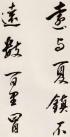 意与夏鎮不
遠數百里冒